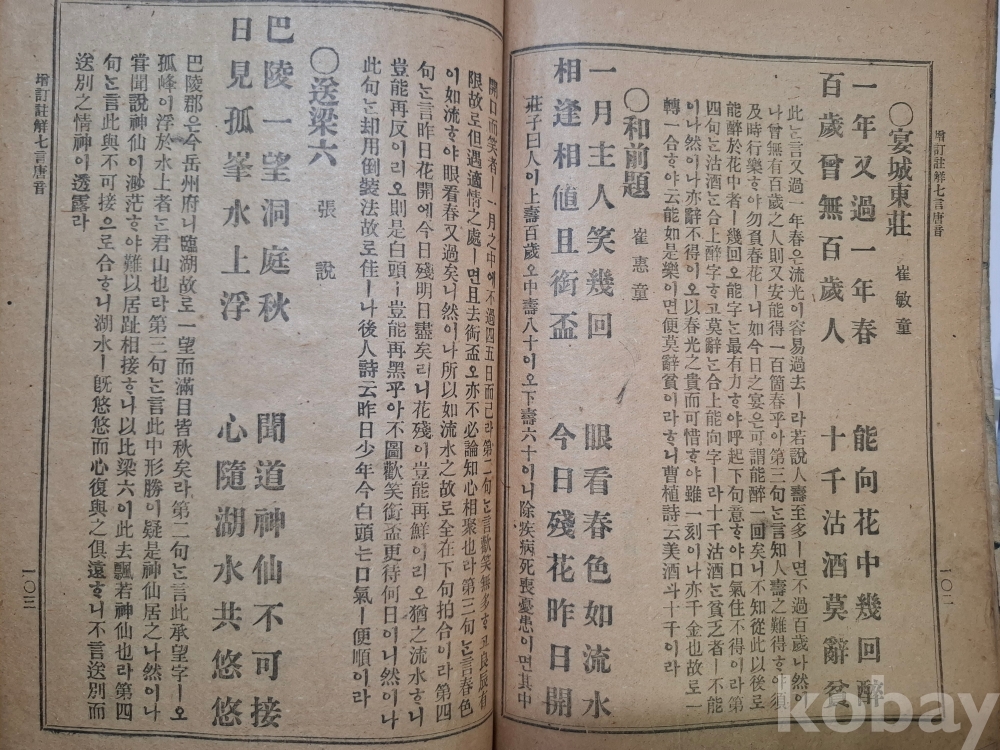 增訂註解七言唐音
○宴城東莊 崔敏童
一年又過一年春 能向花中幾回醉
百歲曾無百歲人 十千沽酒莫辭貧
此ᄂᆞᆫ言又過一年春은流光이容易過去ㅣ라若說人壽至多ㅣ면不過百歲나然이
나曾無有百歲之人則又安能得一百箇春乎아第三句ᄂᆞᆫ言知人壽之難得ᄒᆞ야須
及時行樂ᄒᆞ야勿負春花ㅣ니如今日之宴은可謂能醉一回矣니不知從此以後로
能醉於花中者ㅣ幾回오能字ᄂᆞᆫ最有力ᄒᆞ야呼起下句意ᄒᆞ야口氣住不得이라第
四句ᄂᆞᆫ沽酒ᄂᆞᆫ合上醉字ᄒᆞ고莫辭ᄂᆞᆫ合上能向字ㅣ라十千沽酒ᄂᆞᆫ貧乏者ㅣ不能
이나然이나亦辭不得이오以春光之貴而可惜ᄒᆞ야雖一刻이나亦千金也故로一
轉一合ᄒᆞ야云能如是樂이면便莫辭貧이라ᄒᆞ니曹植詩云美酒斗十千이라
○和前題 崔惠童
一月主人笑幾回 眼看春色如流水
相逢相値且銜盃 今日殘花昨日開
莊子曰人이上壽百歲오中壽八十이오下壽六十이니除疾病死喪憂患이면其中
一〇二
開口而笑者ㅣ一月之中에不過四五日而已라第二句ᄂᆞᆫ言歡笑無多ᄒᆞ고良辰有
限故로但遇適情之處ㅣ면且去銜盃오亦不必論知心相聚也라第三句ᄂᆞᆫ言春色
이如流ᄒᆞ야眼看春又過矣니然이나所以如流水之故로全在下句拍合이라第四
句ᄂᆞᆫ言昨日花開에今日殘明日盡矣리니花殘이豈能再鮮이리오猶之流水ᄒᆞ니
豈能再反이리오則是白頭ㅣ豈能再黑乎아不圖歡笑銜盃更待何日이니然이나
此句ᄂᆞᆫ却用倒裝法故로佳ㅣ나後人詩云昨日少年今白頭ᄂᆞᆫ口氣ㅣ便順이라
○送梁六 張說
巴陵一望洞庭秋 聞道神仙不可接
日見孤峯水上浮 心隨湖水共悠悠
巴陵郡은今岳州府니臨湖故로一望而滿目皆秋矣라第二句ᄂᆞᆫ言此承望字ㅣ오
孤峰이浮於水上者ᄂᆞᆫ君山也라第三句ᄂᆞᆫ言此中形勝이疑是神仙居之나然이나
嘗聞說神仙이渺茫ᄒᆞ야難以居趾相接ᄒᆞ나以比梁六이此去飄若神仙也라第四
句ᄂᆞᆫ言此與不可接으로合ᄒᆞ니湖水ㅣ旣悠悠而心復與之俱遠ᄒᆞ니不言送別而
送別之情神이透露라
增訂註解七言唐音
一〇三
kobay